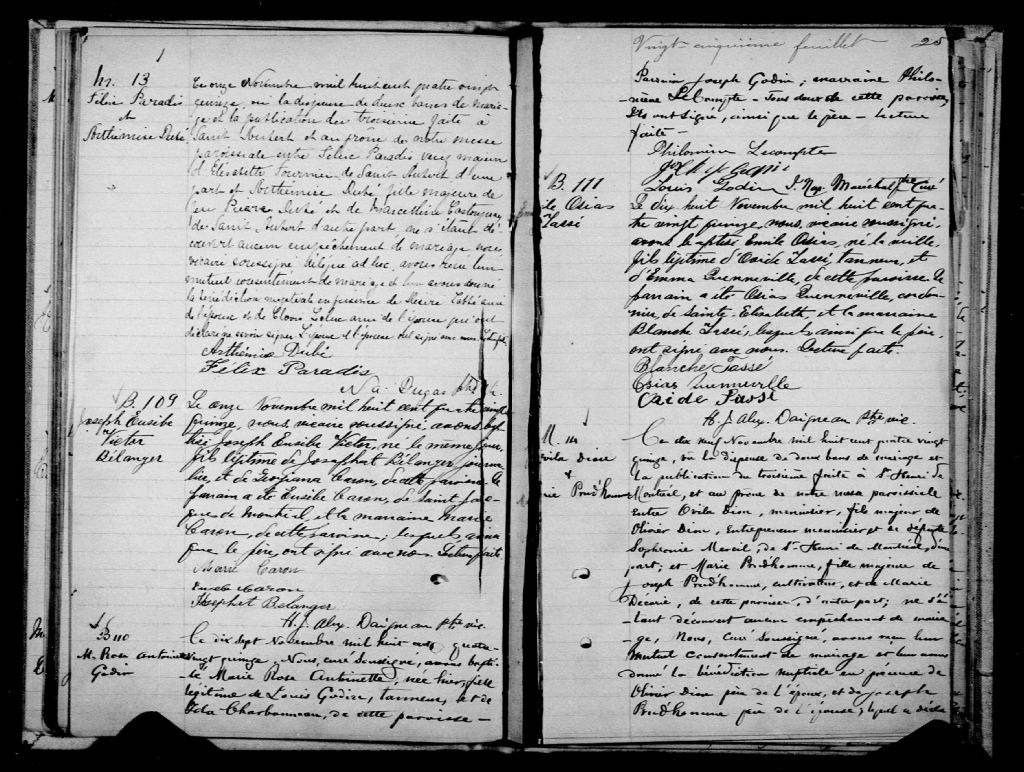 1
M. 13
Félix Paradis
et
Arthémise Dubé
Le onze Novembre mil huit cent quatre vingt
quinze, vu la dispense de deux bancs de maria-
ge et la publication du troisième faite à
Saint Hubert et au prône de notre messe
paroissiale entre Félix Paradis veuf majeur
d'Elisabeth Fournier de Saint Hubert d'une
part et Arthémise Dubé fille majeure de
feu Pierre Dubé et de Marcelline
de Saint Hubert d'autre part, ne s'étant dé-
couvert aucun empêchement de mariage nous
vicaire soussigné délégué ad hoc, avons reçu leur
mutuel consentement de mariage et leur avons donné
la bénédiction nuptiale en présence de
de l'époux et de ami de l'épouse qui ont
déclaré ne savoir signer l'époux et l'épouse ont signé avec nous
Arthémis Dubé
Félix Paradis
N. A. Dugas ptre
B. 109
Joseph Eusèbe
Victor
Bélanger
Le onze Novembre mil huit cent quatre vingt
quinze, nous, vicaire soussigné, avons bap-
tisé Joseph Eusèbe Victor, né le même jour,
fils légitime de Josephat Bélanger journa-
lier, et de Georgiana Caron, de cette paroisse. Le
parrain a été Eusèbe Caron, de Saint Jac-
ques de Montréal, et la marraine Marie
Caron, de cette paroisse; lesquels, ainsi
que le père, ont signé avec nous. Lecture faite
Marie Caron
Eusèbe Caron
Josephat Bélanger
H. J. Alex. Daigneau ptre vic.
B 110
M. Rose Antoinette
Godin
Ce dix sept Novembre mil huit cent quatre
vingt quinze, Nous, curé soussigné, avons bapti-
sé Marie Rose Antoinette, née hier, fille
légitime de Louis Godin, tanneur, et de
Charbonneau, de cette paroisse -
Vingt cinquième feuillet 25
Parrain Joseph Godin; marraine Philo-
-mène LeCompte - Tous deux de cette paroisse,
Ils ont signé, ainsi que le père - Lecture
faite -
Philomène Lecompte
Louis Godin J. Nap. Maréchal Ptre Curé
B. 111
Osias
Tassé
Le dix huit Novembre mil huit cent qua-
tre vingt quinze, nous, vicaire soussigné,
avons baptisé Emile Osias, né la veille,
fils légitime d'Ovide Tassé, tanneur, et
d'Emma Quenneville, de cette paroisse. Le
parrain a été Osias Quenneville, cordon-
nier, de Sainte Elisabeth, et la marraine
Blanche Tassé, lesquels, ainsi que le père
ont signé avec nous. Lecture faite.
Blanche Tassé
Osias Quenneville
Ovide Tassé
H. J. Alex. Daigneau Ptre vic.
M. 14
Ovila Dion
&
Prud'homme
Ce dix neuf Novembre mil huit cent quatre vingt
quinze, vu la dispense de deux bans de mariage et
la publication du troisième faite à St Henri de
Montréal, et au prône de notre messe paroissiale
Entre Ovila Dion, menuisier, fils majeur de
Olivier Dion, Entrepreneur menuisier, et de défunte
Sophronie Merceil, de St Henri de Montréal, d'une
part; et Marie Prud'homme, fille majeure de
Joseph Prud'homme, cultivateur, et de Marie
Décarie, de cette paroisse, d'autre part; ne s'é-
tant découvert aucun empêchement de maria-
ge, Nous, Curé soussigné, avons reçu leur
mutuel consentement de mariage et leur avons
donné la bénédiction nuptiale en présence de
Olivier Dion père de l'époux, et de Joseph
Prud'homme père de l'épouse, lequel a décla